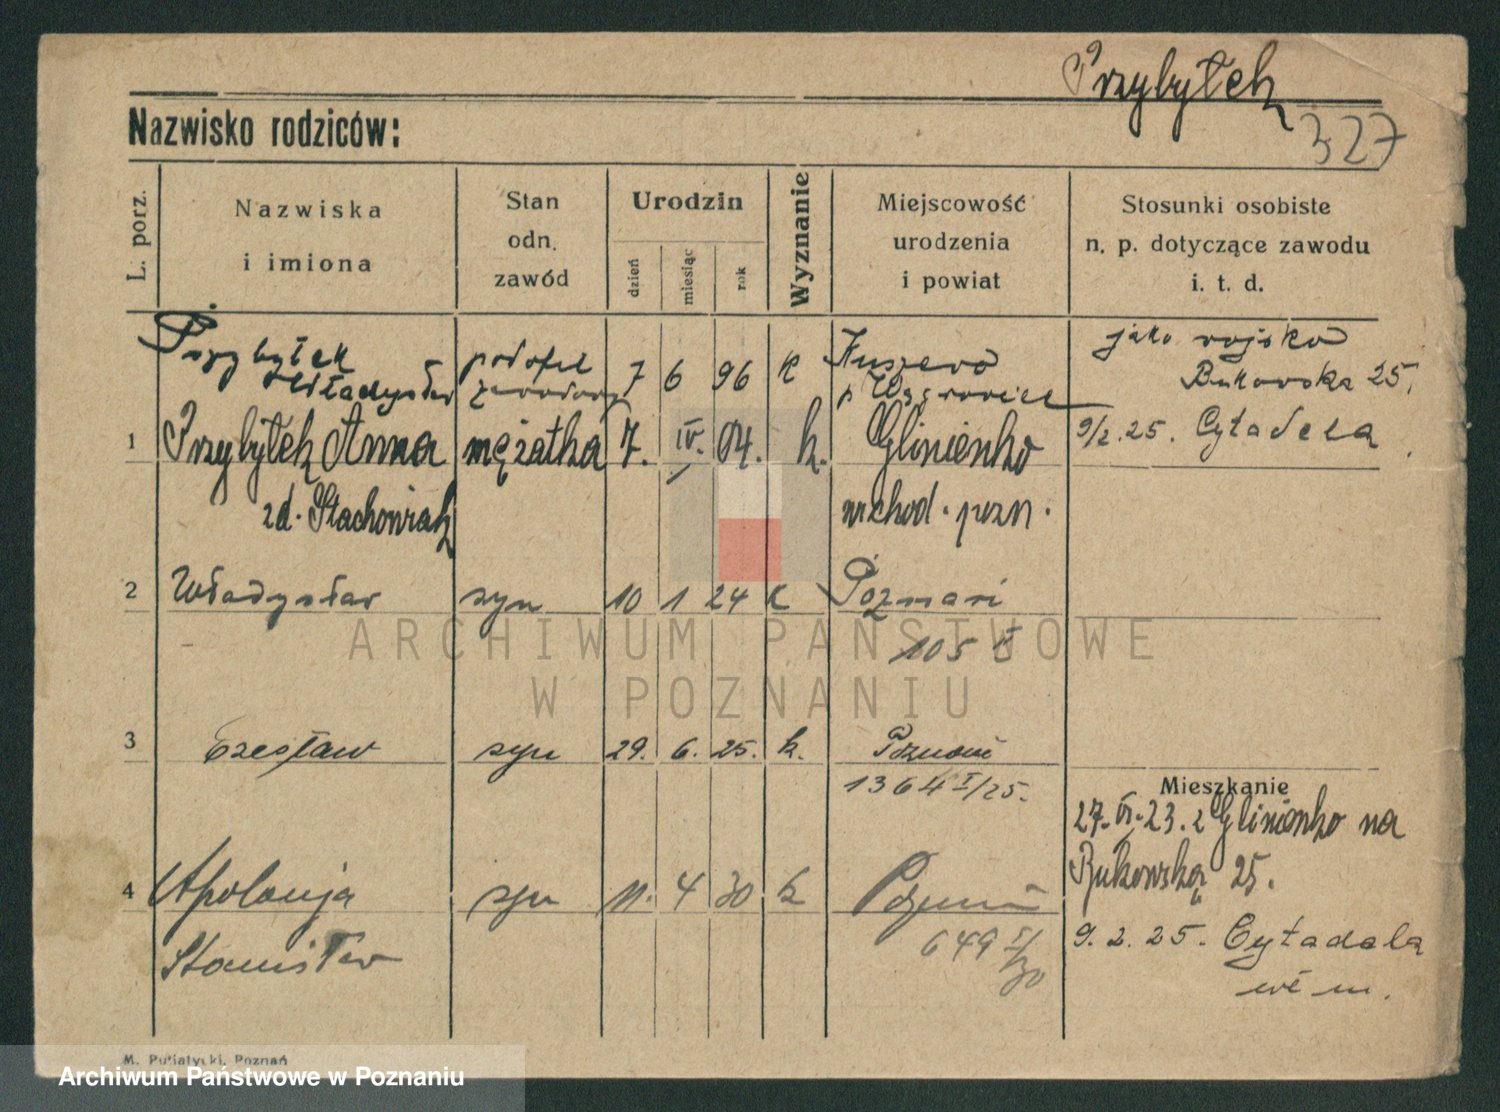 Przybyłek
327
Nazwisko rodziców:
L. porz.
Nazwiska
i imiona
Stan
odn.
zawód
Urodzin
dzień
miesiąc
rok
Wyznanie
Miejscowość
urodzenia
i powiat
Stosunki osobiste
n. p. dotyczące zawodu
i. t. d.
Przybyłek podofic 7 6 96 k
Władysław zawodowy
p Wągrowiec
jako wojsko
Bukowska 25.
1 Przybyłek Anna mężatka 7. IV. 04. k. Glinienko 9/2. 25. Cytadela
zd. Stachowiak wschod. pozn.
2 Władysław syn 10 1 24 k Poznań
105 II
3 Czesław syn 29. 6. 25. k. Poznań
1364 I/25.
Mieszkanie
27. VI. 23. z Glinienko na
Bukowską 25.
4 Apolonja syn 11. 4 30 k Poznań
Stanisław 649 I/30
9. 2. 25. Cytadela
M. Putiatycki, Poznań
ARCHIWUM PAŃSTWOWE
W POZNANIU
Archiwum Państwowe w Poznaniu